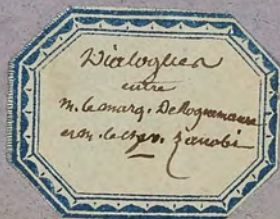 Dialogues
entre
M. le marq. De Roquemaure
et M. le chev. Zanobi